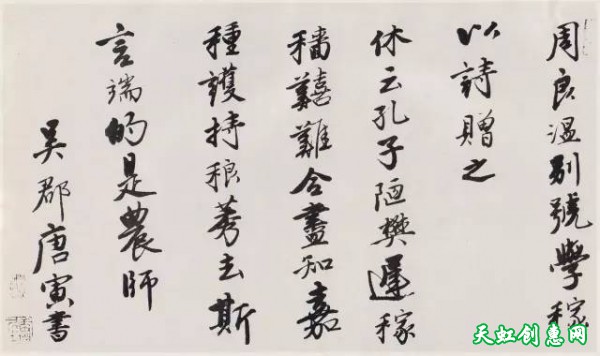 周良溫別號學稼
以詩贈之
休云孔子陋樊遲稼
穡囏難合盡知嘉
種護持稂莠去斯
言端的是農師
吳郡唐寅書
天虹创惠网